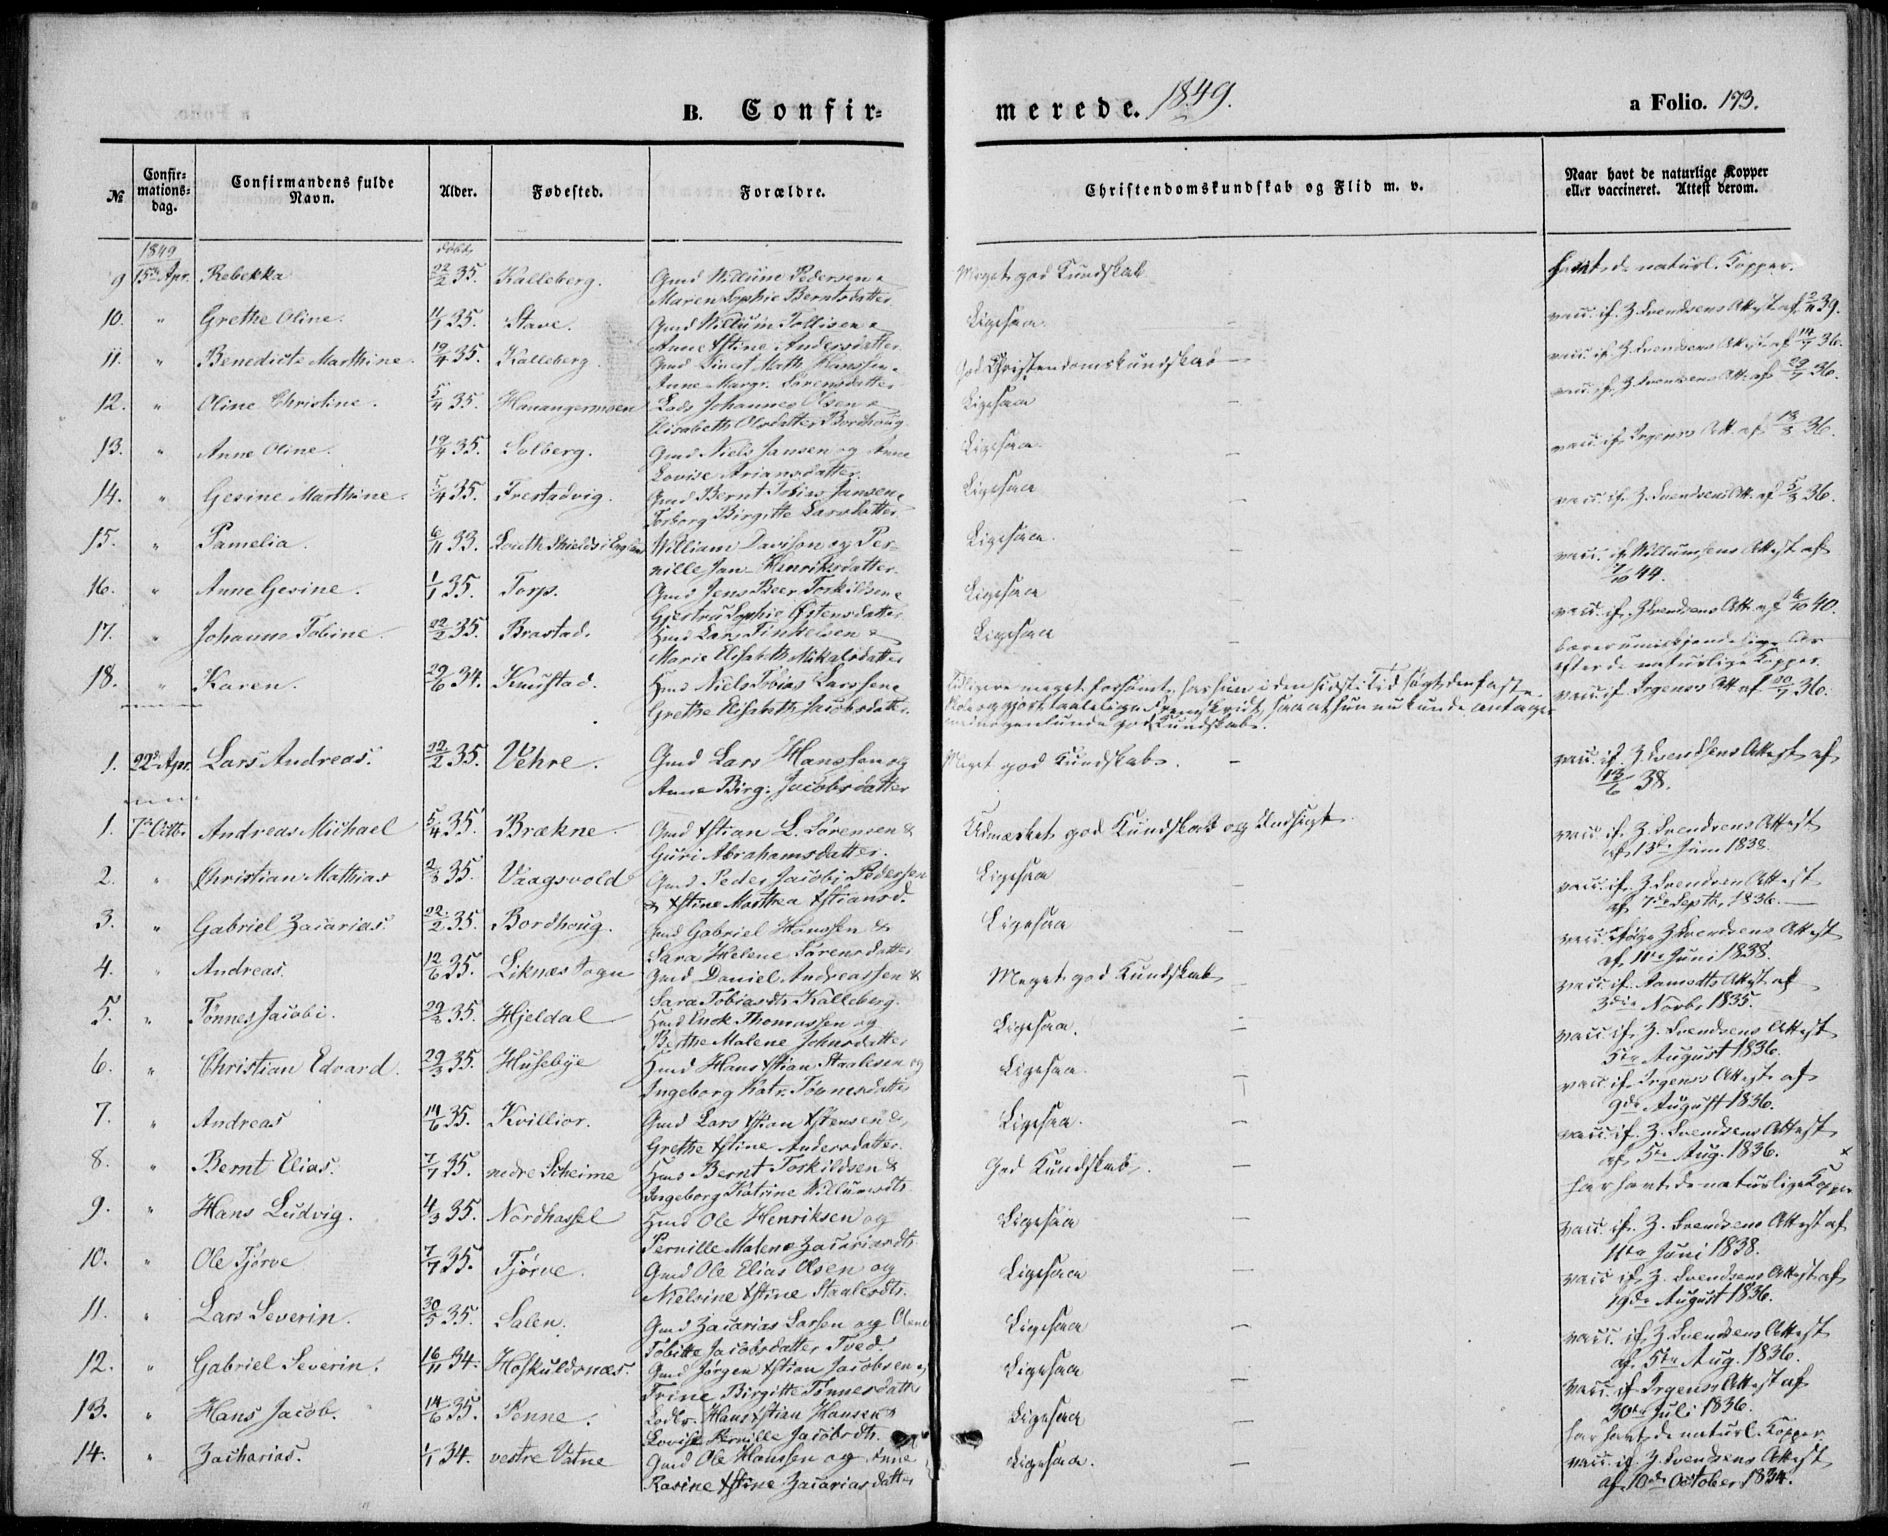 B. Confir-
merede. 1849.
a Folio. 173.
№
Confir-
mations-
dag.
Confirmandens fulde
Navn.
Alder.
Fødested.
Forældre.
Christendomskundskab og Flid m. v.
Naar havt de naturlige Kopper
eller vaccineret. Attest derom.
1849 døbt
9 15de Apr. Rebekka 22/2 35. Kalleberg. Gmd Willume Pedersen & Meget god Kundskab havt de naturl. Kopper.
Maren Sophie Berntsdatter
10. " Grethe Oline. 35. Stave. Gmd Willum Tollisen & Ligesaa. – vacc. if. Z. Svendsens Attest af 39.
Anne Xstine Andersdatter
11. " Benedicte Marthine. 19/4 35. Kalleberg. Gmd Math. Hanssen & God Christendomskundskab – vacc. if. Z. Svendsens Attest af 14/7 36.
Anne Margr. Sørensdatter
12. " Oline Christine. 5/4 35. Hanangermoen Lods Johannes Olsen & Ligesaa – vacc. if. Z. Svendsens Att. af 36.
Elisabeth Olsdatter Bordhoug
13. " Anne Oline. 19/4 35. Solberg. Gmd Niels Jansen og Anne Ligesaa. – vacc. if. Irgens's Att. af 13/8 36.
Lovise Ariansdatter
14. " Gesine Marthine. 5/4 35. Trestadvig. Gmd Bernt Tobias Jansen & Ligesaa – vacc. if. Z. Svendsens Att. af 36.
Torborg Birgitte Larsdatter
15. " Pamelia. 6/11 33. South Shields i England William Davison og Per- Ligesaa. – vacc. if. Willumsens Attest af
nille Jan-Henriksdatter 7/10 44.
16. " Anne Gesine. 1/1 35. Torp. Gmd Jens Beer Torkildsen & Ligesaa – vacc. if. Svendsens Att. af 6/10 40.
Gjertru Sophie Østensdatter
17. " Johanne Tobine. 22/2 35. Brastad. Hmd Lars Tinkelsen & Ligesaa – bærer umiskjendelige Ar
Marie Elisabeth Mikalsdatter efter de naturlige Kopper.
18. " Karen. 29/6 34. Knustad. Hmd Niels Tobias Larssen & Tidligere meget forsømt, har hun i den sidste Tid søgt den faste vacc. if. Irgens's Att af 20/7 36.
Grethe Elisabeth Jacobsdatter Skole og gjort taalelige Fremskridt, saa at hun nu kunde antages
med nogenlunde god Kundskab.
1. 22de Apr. Lars Andreas. 22/2 35. Vehre. Gmd Lars Hanssen og Meget god Kundskab. – vacc. if. Z. Svendsens Attest af
Anne Birg. Jacobsdatter 13/6 38.
1. 7de Octbr Andreas Michael 5/4 35. Brækne. Gmd Xstian L. Sørensen & Udmærket god Kundskab og Indsigt. vacc. if. Z. Svendsens Attest
Guri Abrahamsdatter. af 13de Juni 1838.
2. " Christian Mathias 2/3 35. Vaagsvold Gmd Peder Jacobi Pedersen Ligesaa – vacc. if. Z. Svendsen Attest
& Xstine Marthea Xstiansd. af 7de Septb. 1836.
3. " Gabriel Zacarias. 22/2 35. Bordhoug. Gmd Gabriel Hanssen & Ligesaa – vacc. ifølge Z Svendsens Attest
Sara Helene Sørensdatter af 11te Juni 1838.
4. " Andreas. 12/6 35. Liknæs Sogn Gmd Daniel Andreassen & Meget god Kundskab – vacc. if. Aamodts Attest af
Sara Tobiasdtr Kalleberg. 3die Novbr. 1835.
5. " Tønnes Jacobi. 35. Hjeldal Hmd Enok Thomassen og Ligesaa. – vacc. if. Z. Svendsens Attest
Berthe Malene Johnsdatter 5te August 1836.
6. " Christian Edvard. 29/3 35. Husebye Hmd Hans Xstian Staalesen og Ligesaa. – vacc. if. Irgens's Attest af
Ingeborg Katr. Tønnesdatter 9de August 1836.
7. " Andreas 14/6 35. Kvillior. Gmd Lars Xstian Xstensen & Ligesaa. – vacc. if. Z. Svendsens Attest
Grethe Xstine Andersdatter. af 5te Aug. 1836.
8. " Bernt Elias. 35. nedre Skeime Hms Bernt Torkildsen & God Kundskab. – har havt de naturlige Kopper
Ingeborg Katrine Willumsdtr
9. " Hans Ludvig. 4/3 35. Nordhassel Hmd Ole Henriksen og Ligesaa – vacc. if. Z. Svendsens Attest af
Pernille Malene Zacariasdtr. 11te Juni 1838.
10. " Ole Tjørve 7/7 35. Tjørve. Gmd Ole Elias Olsen og Ligesaa – vacc if. Z. Svendsens Attest af
Nielsine Xstine Staalesdtr. 19de August 1836.
11. " Lars Severin. 30/5 35. Salen. Gmd Zacarias Larsen og Olene Ligesaa – vacc. if. Z. Svendsens Attest
Tobitta Jacobsdatter Tved. af 5te Aug. 1836.
12. " Gabriel Severin. 16/11 34. Høskuldsnæs. Gmd Jørgen Xstian Jacobsen og Ligesaa – vacc. if. Irgens's Attest af
Trine Birgitte Tønnesdatter 30te Juli 1836.
13. " Hans Jacob. 14/6 35. Penne. Lodsr. Hans Xstian Hansen & Ligesaa – har havt de naturl. Kopper
Lovise Pernille Jacobsdtr.
14. " Zacharias. 1/1 34. vestre Vatne Gmd Ole Hanssen og Anne Ligesaa. – vacc. if. Z. Svendsens Attest
Rasine Xstine Zacariasdatter af 10de October 1834.